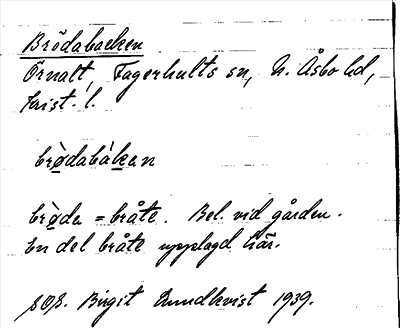 Brödabacken
Örnalt, Fagerhults sn, N. Åsbo hd,
Krist. l.
brø̀dabák̲an
brø̀da = bråte. Bel. vid gården.
En del bråte upplagd här.
SOS. Birgit Sundkvist 1939.